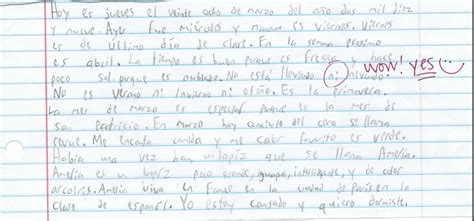 Hoy es jueves el veinte ocho de marzo del año dos mil diez
y nueve. Ayer fue miércoles y manana es viernes. Viernes
es de último día de clase. En la semana proximo
es abril. La tiempo es buen porque es fresco y hace
poco sol porque es nublado. No está lloviendo ni nivando. wow! yes
No es verano ni invierno ni otoño. Es la primavera.
La mes de marzo es especial porque es la mes de
san patricio. En marzo hay concierto del coro se llama
Me encanta comida y me color favorito es verde.
Había una vez hay un lapiz que se llama Amelia.
Amelia es un lapiz poco grande, guapa, inteligente, y de color
arcoiris. Amelia viva en France en la ciudad de Paris en la
clase de español. Yo estoy cansado y quiero dormiste.